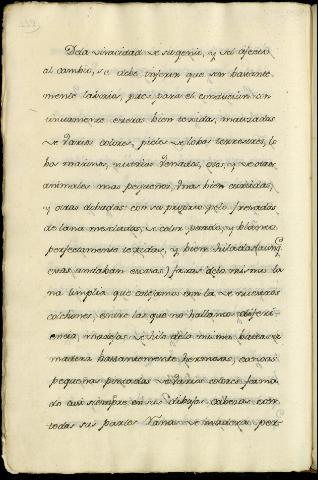 Dela vivacidad de su genio, y su afecto
al cambio, se debe inferir que son bastante
mente laborio, pues para el conducían con
tinuamente esteras bien texidas, matizadas
de varios colores, pieles de lobos terrestres, lo
bos marinos, nutrias, Venados, osos, y de otros
animales mas pequeños, Unas bien curtidas,
y otras adobadas con su proprio pelo, frezadas
de lana mezcladas, de color pardo, y blanco
perfectamente texidas, y bien hiladas (aunq
estas andaban escasas) faxas dela misma la
na limpia que cotejamos con la de nuestros
colchones, entre las que no hallamos diferi
encia, madejas de hilo dela misma bateas de
madera bastantemente hermosas, canoas
pequeñas pintadas de varios colores forma
do casi siempre en sus dibujos cabezas con
todas sus partes Ranas de madera, per-